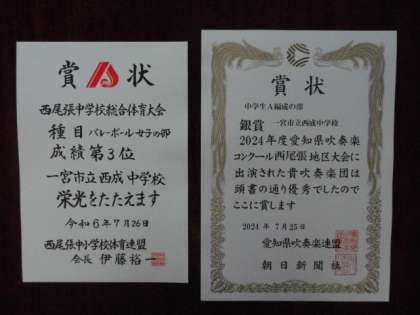 賞状
西尾張中学校総合体育大会
種目 バレーボール 女子の部
成績 第3位
一宮市立西成中学校
栄光をたたえます
令和6年7月26日
西尾張中小学校体育連盟
会長 伊藤裕一
賞状
中学生A編成の部
銀賞 一宮市立西成中学校
2024年度愛知県吹奏楽
コンクール西尾張地区大会に
出演された貴吹奏楽団は
頭書の通り優秀でしたので
ここに賞します
2024年7月25日
愛知県吹奏楽連盟
朝日新聞社